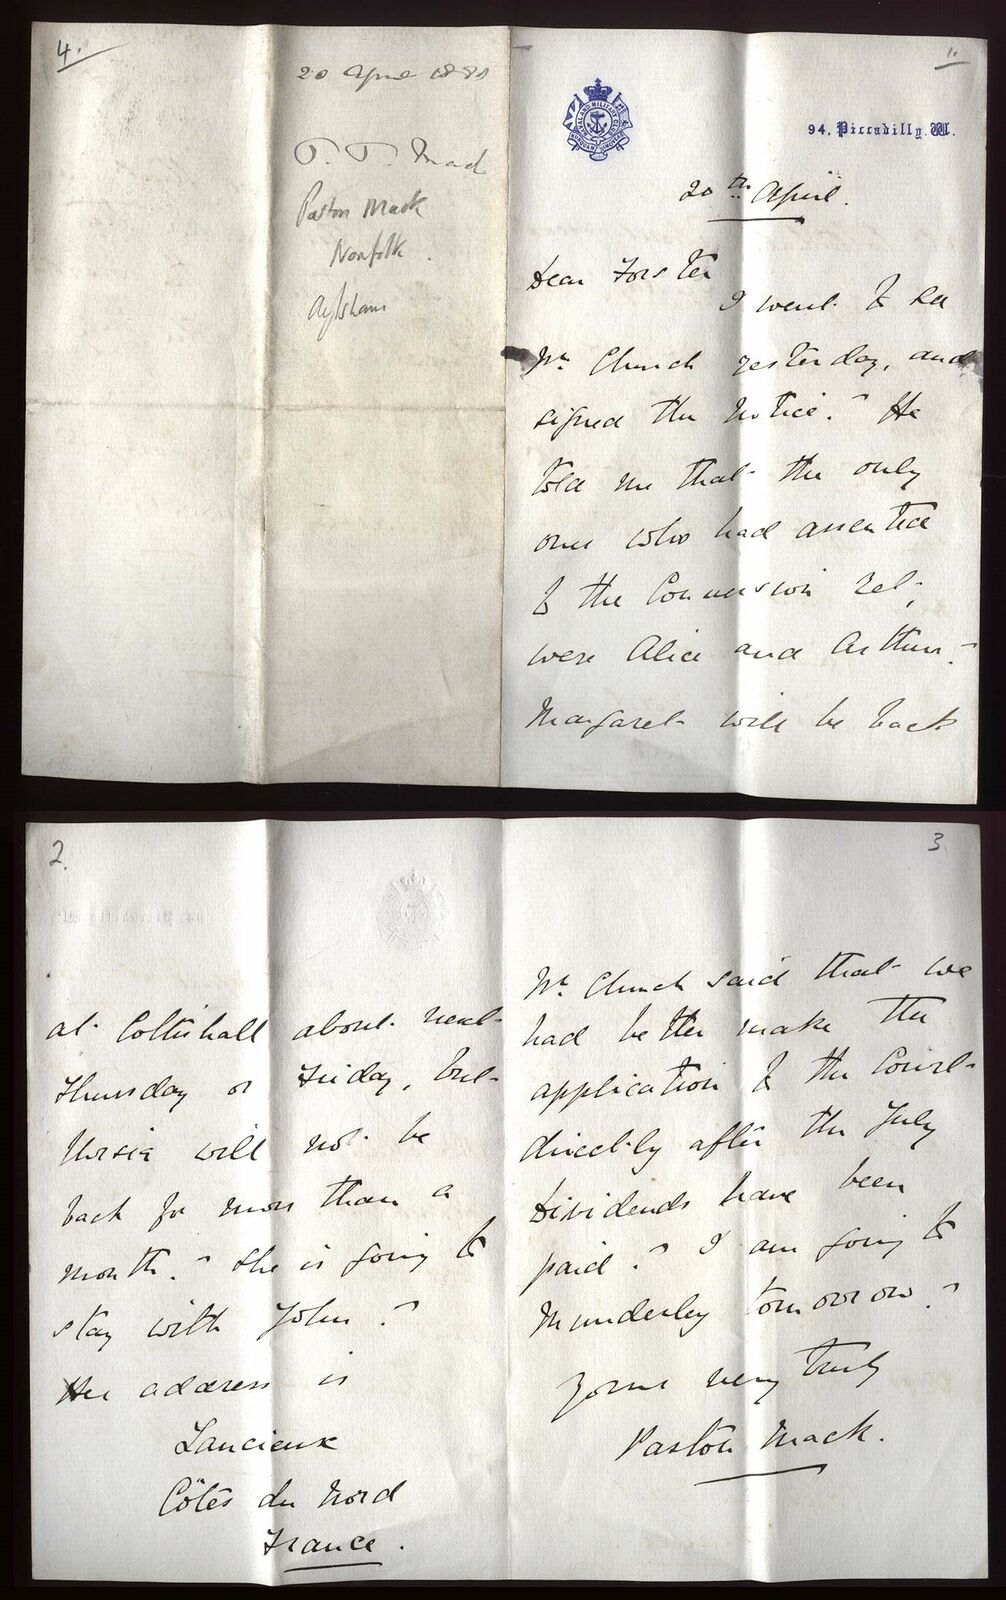 4.
20 April 188
Paston Mack
Norfolk.
Aylsham
1.
NAVAL AND MILITARY CLUB
94, Piccadilly. W.
20th April.
Dear Forster
I went to see
Mr. Church yesterday, and
signed the notice. He
told me that the only
ones who had assented
to the Conversion
were Alice and Arthur.
Margaret will be back
2.
at Coltishall about next
Thursday or Friday, but
Ursula will not be
back for more than a
month. She is going to
stay with John.
Her address is
Lancieux
Côtes du Nord
France.
3
Mr. Church said that we
had better make the
application to the Court
directly after the July
Dividends have been
paid. I am going to
Munderley tomorrow.
Yours very truly
Paston Mack.